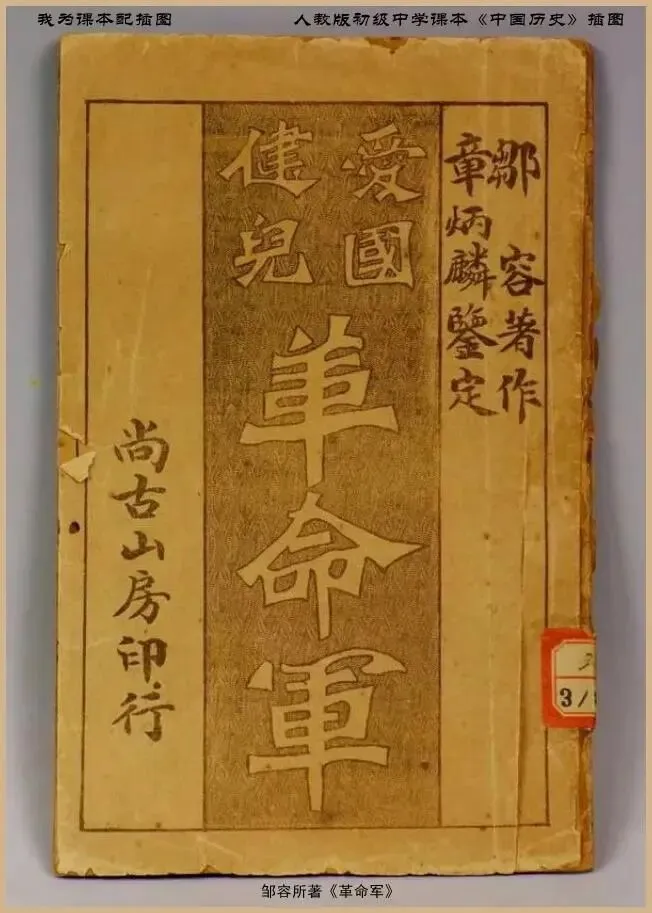 我为课本配插图
人教版初级中学课本《中国历史》插图
鄒容著作
章炳麟鑒定
愛國
健兒
革命軍
尚古山房印行
3/
邹容所著《革命军》